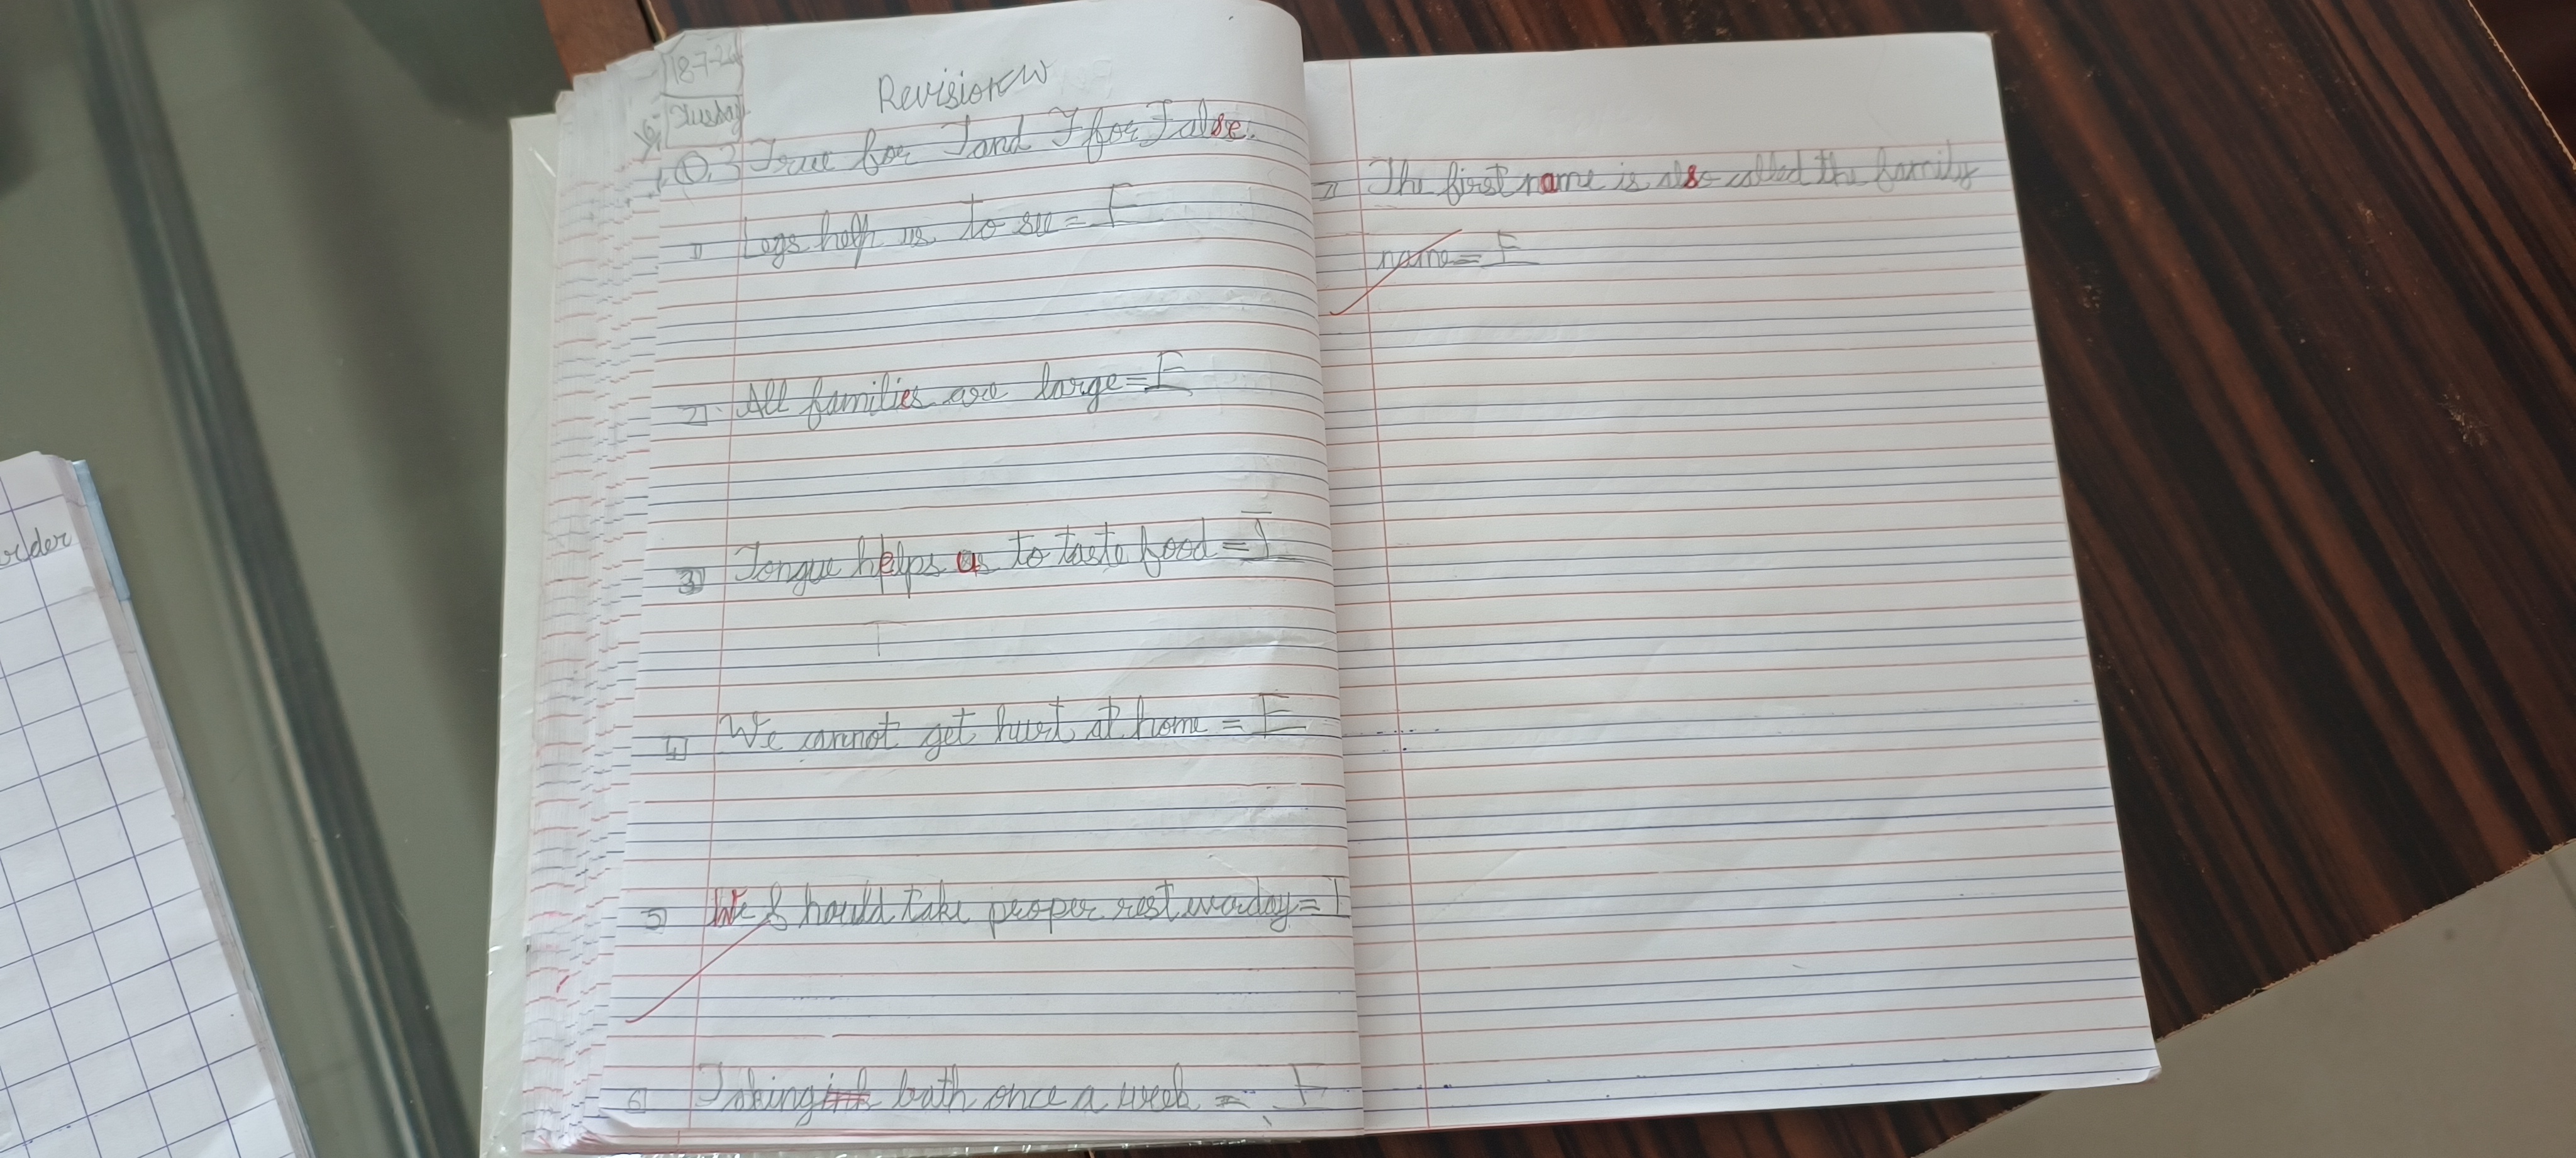 18-7-24
Tuesday
Revision CW
Q.3 True for T and F for False.
1) Legs help us to see = F
2) All families are large = F
3) Tongue helps us to taste food = T
4) We cannot get hurt at home = F
5) We should take proper rest everday = T
6) Taking bath once a week = F
7) The first name is also called the family
name = F
order